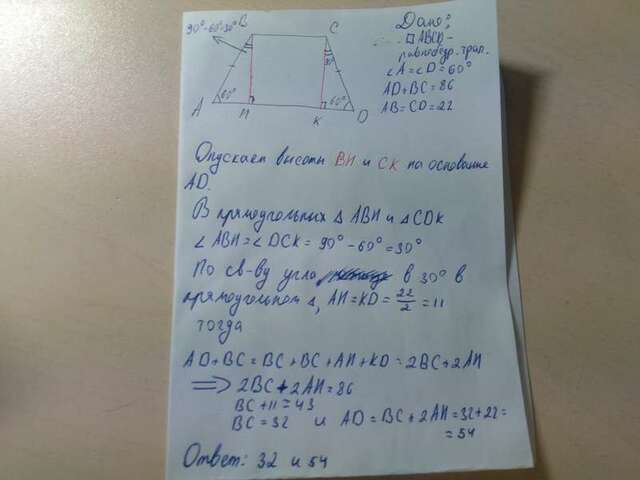 90°-60°=30° B
C
30°
A 60° H K 60° D
Дано:
ABCD-
равнобедр. трап.
∠A=∠D=60°
AD+BC=86
AB=CD=22
Опускаем высоты BH и CK на основание
AD.
В прямоугольных △ ABH и △CDK
∠ABH=∠DCK=90°-60°=30°
По св-ву угла в 30° в
прямоугольном △, AH=KD=22/2=11
тогда
AD+BC=BC+BC+AH+KD=2BC+2AH
⟹ 2BC+2AH=86
BC+11=43
BC=32 и AD=BC+2AH=32+22=
=54
Ответ: 32 и 54